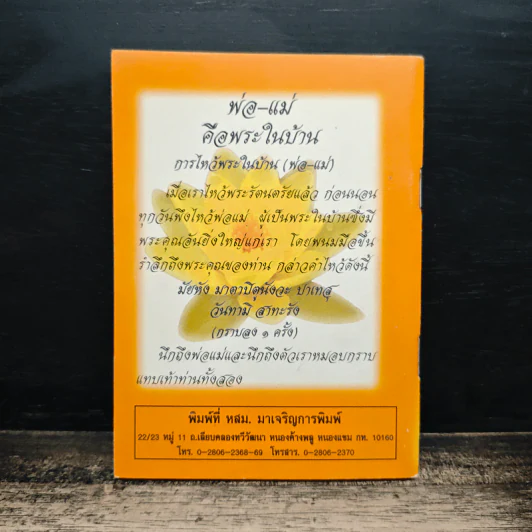 พ่อ-แม่
คือพระในบ้าน
การไหว้พระในบ้าน (พ่อ-แม่)
เมื่อเราไหว้พระรัตนตรัยแล้ว ก่อนนอน
ทุกวันพึงไหว้พ่อแม่ ผู้เป็นพระในบ้านซึ่งมี
พระคุณอันยิ่งใหญ่แก่เรา โดยพนมมือขึ้น
รำลึกถึงพระคุณของท่าน กล่าวคำไหว้ดังนี้
มัยหัง มาตาปิตุนังวะ ปาเทสุ
วันทามิ สาทะรัง
(กราบลง ๑ ครั้ง)
นึกถึงพ่อแม่และนึกถึงตัวเราหมอบกราบ
แทบเท้าท่านทั้งสอง
พิมพ์ที่ หสม. มาเจริญการพิมพ์
22/23 หมู่ 11 ถ.เลียบคลองทวีวัฒนา หนองค้างพลู หนองแขม กท. 10160
โทร. 0-2806-2368-69 โทรสาร. 0-2806-2370